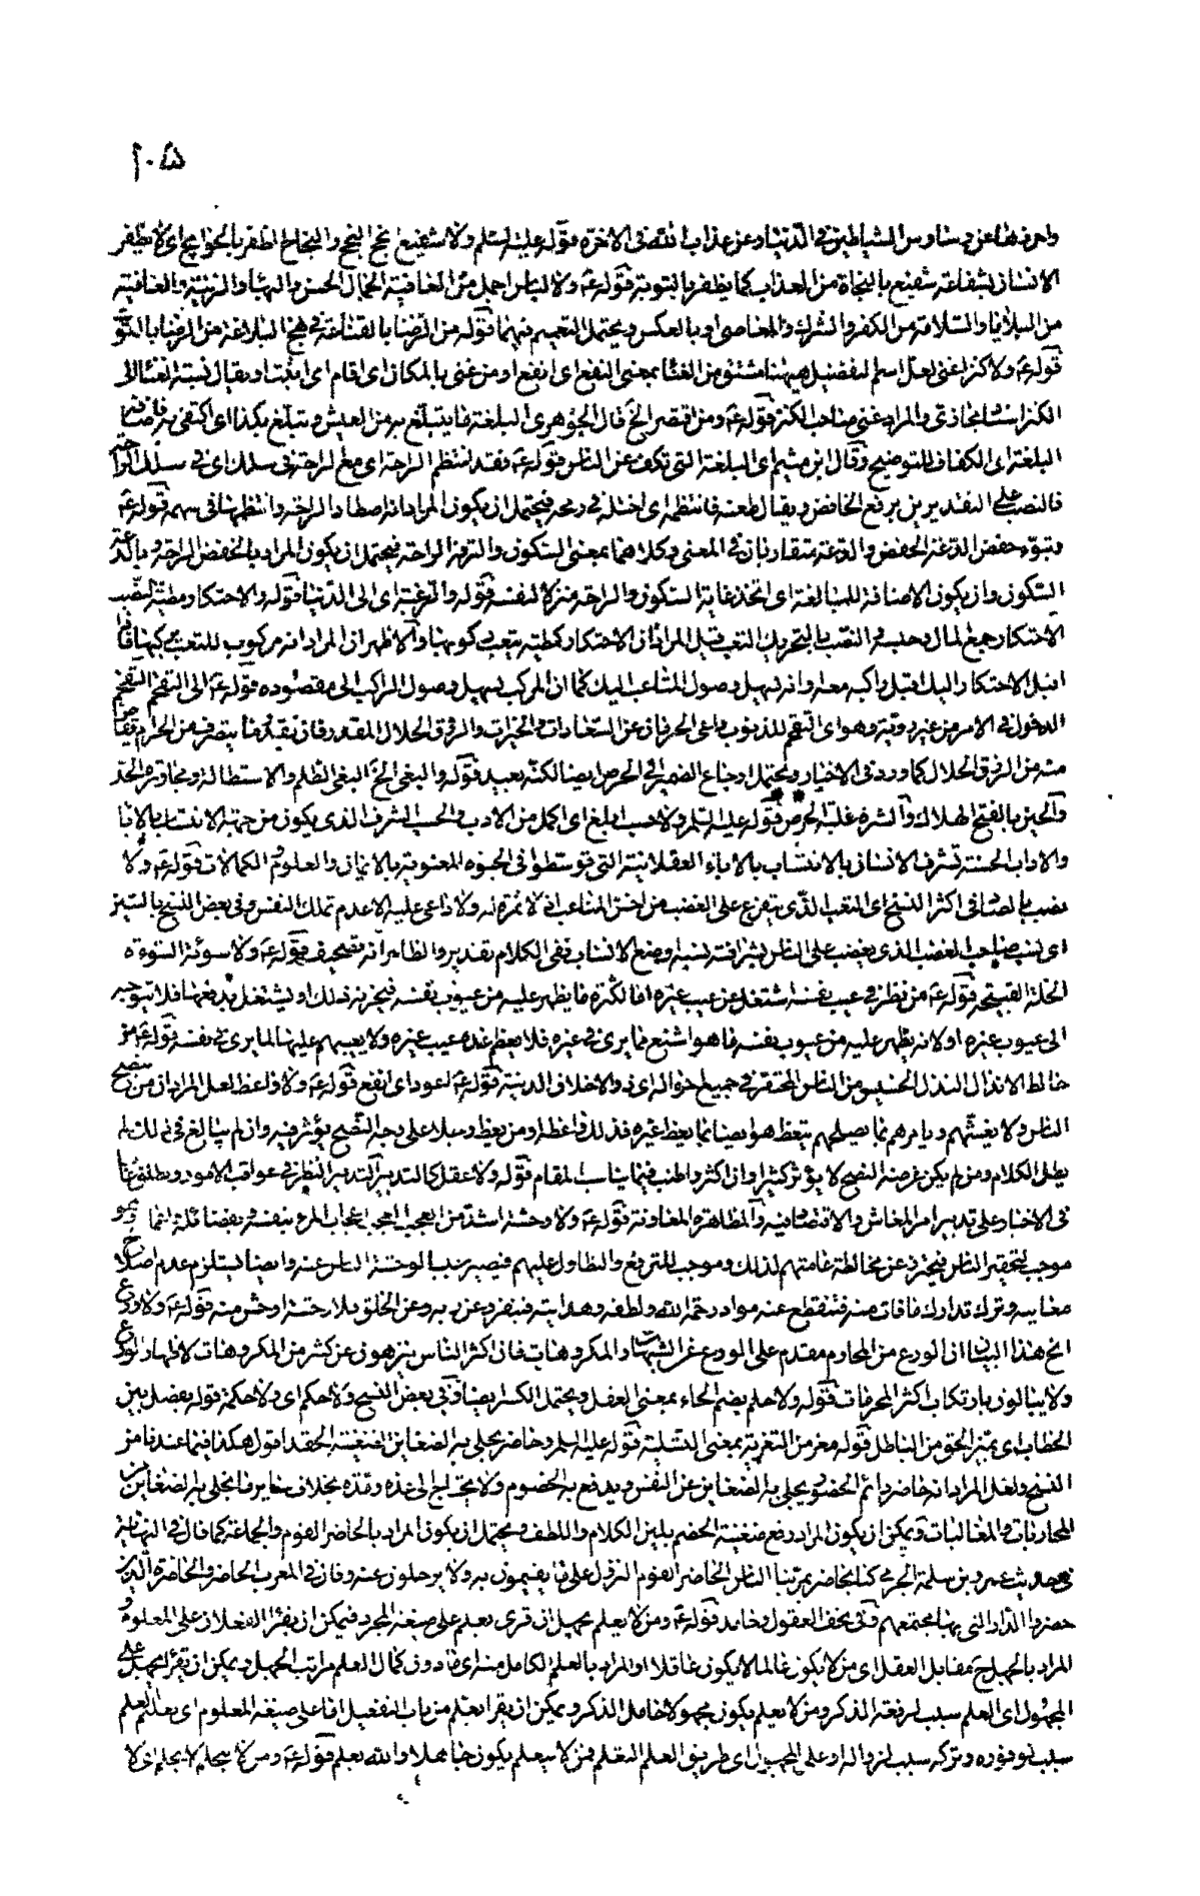 ١٠٥
واحرزها عن وساوس الشياطين في الدنيا وعن عذاب الله في الاخرة قوله عليه السلم ولا شفيع انجح النجح والنجاح الظفر بالحوائج اى لا يظفر
الانسان بشفاعة شفيع بالنجاة من العذاب كما يظفر بالتوبة قوله ع ولا لباس اجمل من العافية الجمال الحسن والبهاء والزينة والعافية
من البلايا والسلامة من الكفر والشرك والمعاصى او بالعكس ويحتمل التعميم فيهما قوله من الرضا بالقناعة في نهج البلاغة من الرضا بالقوت
قوله ع ولا كنز اغنى لعل اسم التفضيل ههنا مشتق من الغناء بمعنى النفع اى انفع او من غنى بالمكان اى اقام اى اثبت او يقال نسبة الغناء الى
الكنز اسناد مجازى والمراد غنى صاحب الكنز قوله ع ومن اقتصر الخ قال الجوهرى البلغة ما يتبلغ به من العيش وتبلغ بكذا اى اكتفى به فاضافة
البلغة الى الكفاف للتوضيح وقال ابن ميثم اى البلغة التى تكف عن الناس قوله ع فقد انتظم الراحة اى مع الراحة في سلك اى في سلك الراحة
فالنصب على التقديرين برفع الخافض ويقال طعنه فانتظمه اى اختله في رمحه فيحتمل ان يكون المراد انه اصطاد الراحة وانتظمها في سهمه قوله ع
وتبوء خفض الدعة الخفض والدعة متقاربان في المعنى وكلاهما بمعنى السكون والترفه الراحة فيحتمل ان يكون المراد بالخفض الراحة وبالدعة
السكون وان يكون الاضافة للمبالغة اى اتخذ غاية السكون والراحة منزلا لنفسه قوله والرغبة اى الى الدنيا قوله والاحتكار مطية النصب
الاحتكار جمع المال وحبسه والنصب بالتحريك التعب قيل المراد ان الاحتكار كمطية يتعب ركوبها والاظهر ان المراد انه مركوب للتعب يركبها فاذا
اقبل الاحتكار اليك اقبل راكبه معه او انه تسهيل وصول المتاعب اليك كما ان المركب تسهيل وصول الراكب الى مقصوده قوله ع الى التقحم التقحم
الدخول في الامر من غير روية وهو اى التقحم للذنوب داعى الحرمان عن السعادات والخيرات والرزق الحلال المقدر فان بقدر ما يتصرف من الحرام يقاص
منه من الرزق الحلال كما ورد في الاخبار ويحتمل ارجاع الضمير الى الحرص ايضا لكنه بعيد قوله والبغى الخ البغى الظلم والاستطالة ومجاوزة الحد
والحين بالفتح الهلاك والشره غلبة الحرص قوله عليه السلم ولا حسب ابلغ اى اكمل من الادب والحسب الشرف الذى يكون من جهة الانتساب بالاباء
والاداب الحسنة تشرف الانسان بالانتساب بالاباء العقلانية التى توسطوا في الحيوة المعنوية بالايمان والعلوم الكمالات قوله ع ولا
نصب بالصاد في اكثر النسخ اى التعب الذى يتفرع على الغضب من اخس المتاعب اذ لا ثمرة له ولا داعى عليه الا عدم تملك النفس وفى بعض النسخ بالسين
اى نسب صاحب الغضب الذى يغضب على الناس بشرافة نسبه اوضع الانساب ففى الكلام تقدير والظاهر انه تصحيف قوله ع ولا سوءة السوءة
الخلة القبيحة قوله ع من نظر في عيب نفسه اشتغل عن عيب غيره اما لكثرة ما يظهر عليه من عيوب نفسه فيحزنه ذلك او يشتغل بدفعها فلا يتوجه
الى عيوب غيره او لانه يظهر عليه من عيوب نفسه ما هو اشنع مما يرى في غيره فلا يعظم عنده عيب غيره ولا يعيبهم عليها لما يرى في نفسه قوله ع من
خالط الانذال النذل الخسيس من الناس المحتقر في جميع احواله اى ذو الاخلاق الدنية قوله ع اعود اى انفع قوله ع ولا واعظ لعل المراد ان من ينصح
الناس ولا يغشهم ويامرهم بما يصلحهم يتعظ هو ايضا بما يعظ غيره فذلك واعظ له ومن يعظ رجلا على وجه النصح يؤثر فيه وان لم يبالغ في ذلك ولم
يطل الكلام ومن لم يكن غرضه النصح لا يؤثر كثيرا وان اكثر واطنب فيما يناسب المقام قوله ولا عقل كالتدبير التدبير النظر في عواقب الامور ويطلق غالبا
في الاخبار على تدبير امر المعاش والاقتصاد فيه والمظاهرة المعاونة قوله ع ولا وحشة اشد من العجب العجب اعجاب المرء بنفسه وبفضائله وانما وهو
موجب لتحقير الناس فيحترز عن مخالطة عامتهم لذلك وموجب للترفع والتطاول عليهم فيصير سببا لوحشة الناس عنه وايضا يستلزم عدم اصلاح
معايبه وترك تدارك ما فات منه فتنقطع عنه مواد رحمة الله ولطفه وهدايته فينفرد عن ربه وعن الخلق فلا وحشة اوحش منه قوله ع ولا ورع
الخ هذا البيان ان الورع من المحارم مقدم على الورع عن الشبهات والمكروهات فان اكثر الناس يتنزهون عن كثير من المكروهات لاظهار الورع
ولا يبالون بارتكاب اكثر المحرمات قوله ولا حلم بضم الحاء بمعنى العقل ويحتمل الكسر ايضا وفى بعض النسخ ولا حكم اى ولا حكمة قوله يفصل بين
الخطاب اى يميز الحق من الباطل قوله معز من التعزية بمعنى التسلية قوله عليه السلم وحاضر يجلى به الضغاين الضغينة الحقد اقول هكذا فيما عندنا من
النسخ ولعل المراد انه حاضر دائم الحضور يجلى به الضغاين عن النفس ويدفع به الخصوم ولا يحتاج الى عدة ومدة بخلاف سائر ما تجلى به الضغاين من
المحاربات والمغالبات ويمكن ان يكون المراد رفع ضغينة الخصم بلين الكلام واللطف ويحتمل ان يكون المراد بالحاضر القوم والجماعة كما قال في النهاية
في حديث عمرو بن سلمة الجرمى كنا بحاضر يمر بنا الناس الحاضر القوم النزول على ماء يقيمون به ولا يرحلون عنه وقال في المغرب الحاضر والحاضرة الذين
حضروا الدار التى بها مجتمعهم قوله يخف العقول وخامد قوله ع ومن لا يعلم يجهل ان قرى يعلم على صيغة المجرد فيمكن ان يقرأ الفعلان على المعلوم و
المراد بالجهل ما يقابل العقل اى من لا يكون عالما لا يكون عاقلا او المراد بالعلم الكامل منه اى ما دون كمال العلم مراتب الجهل ويمكن ان تقرأ يجهل على
المجهول اى العلم سبب لرفعة الذكر ومن لا يعلم يكون مجهولا خامل الذكر ويمكن ان يقرأ يعلم من باب التفعيل اما على صيغة المعلوم اى تعليم العلم
سبب لوفوره وتركه سبب لزواله او على المجهول اى طريق العلم التعلم فمن لا يتعلم يكون جاهلا والله يعلم قوله ع ومن لا يتحلم لا يحلم اى لا